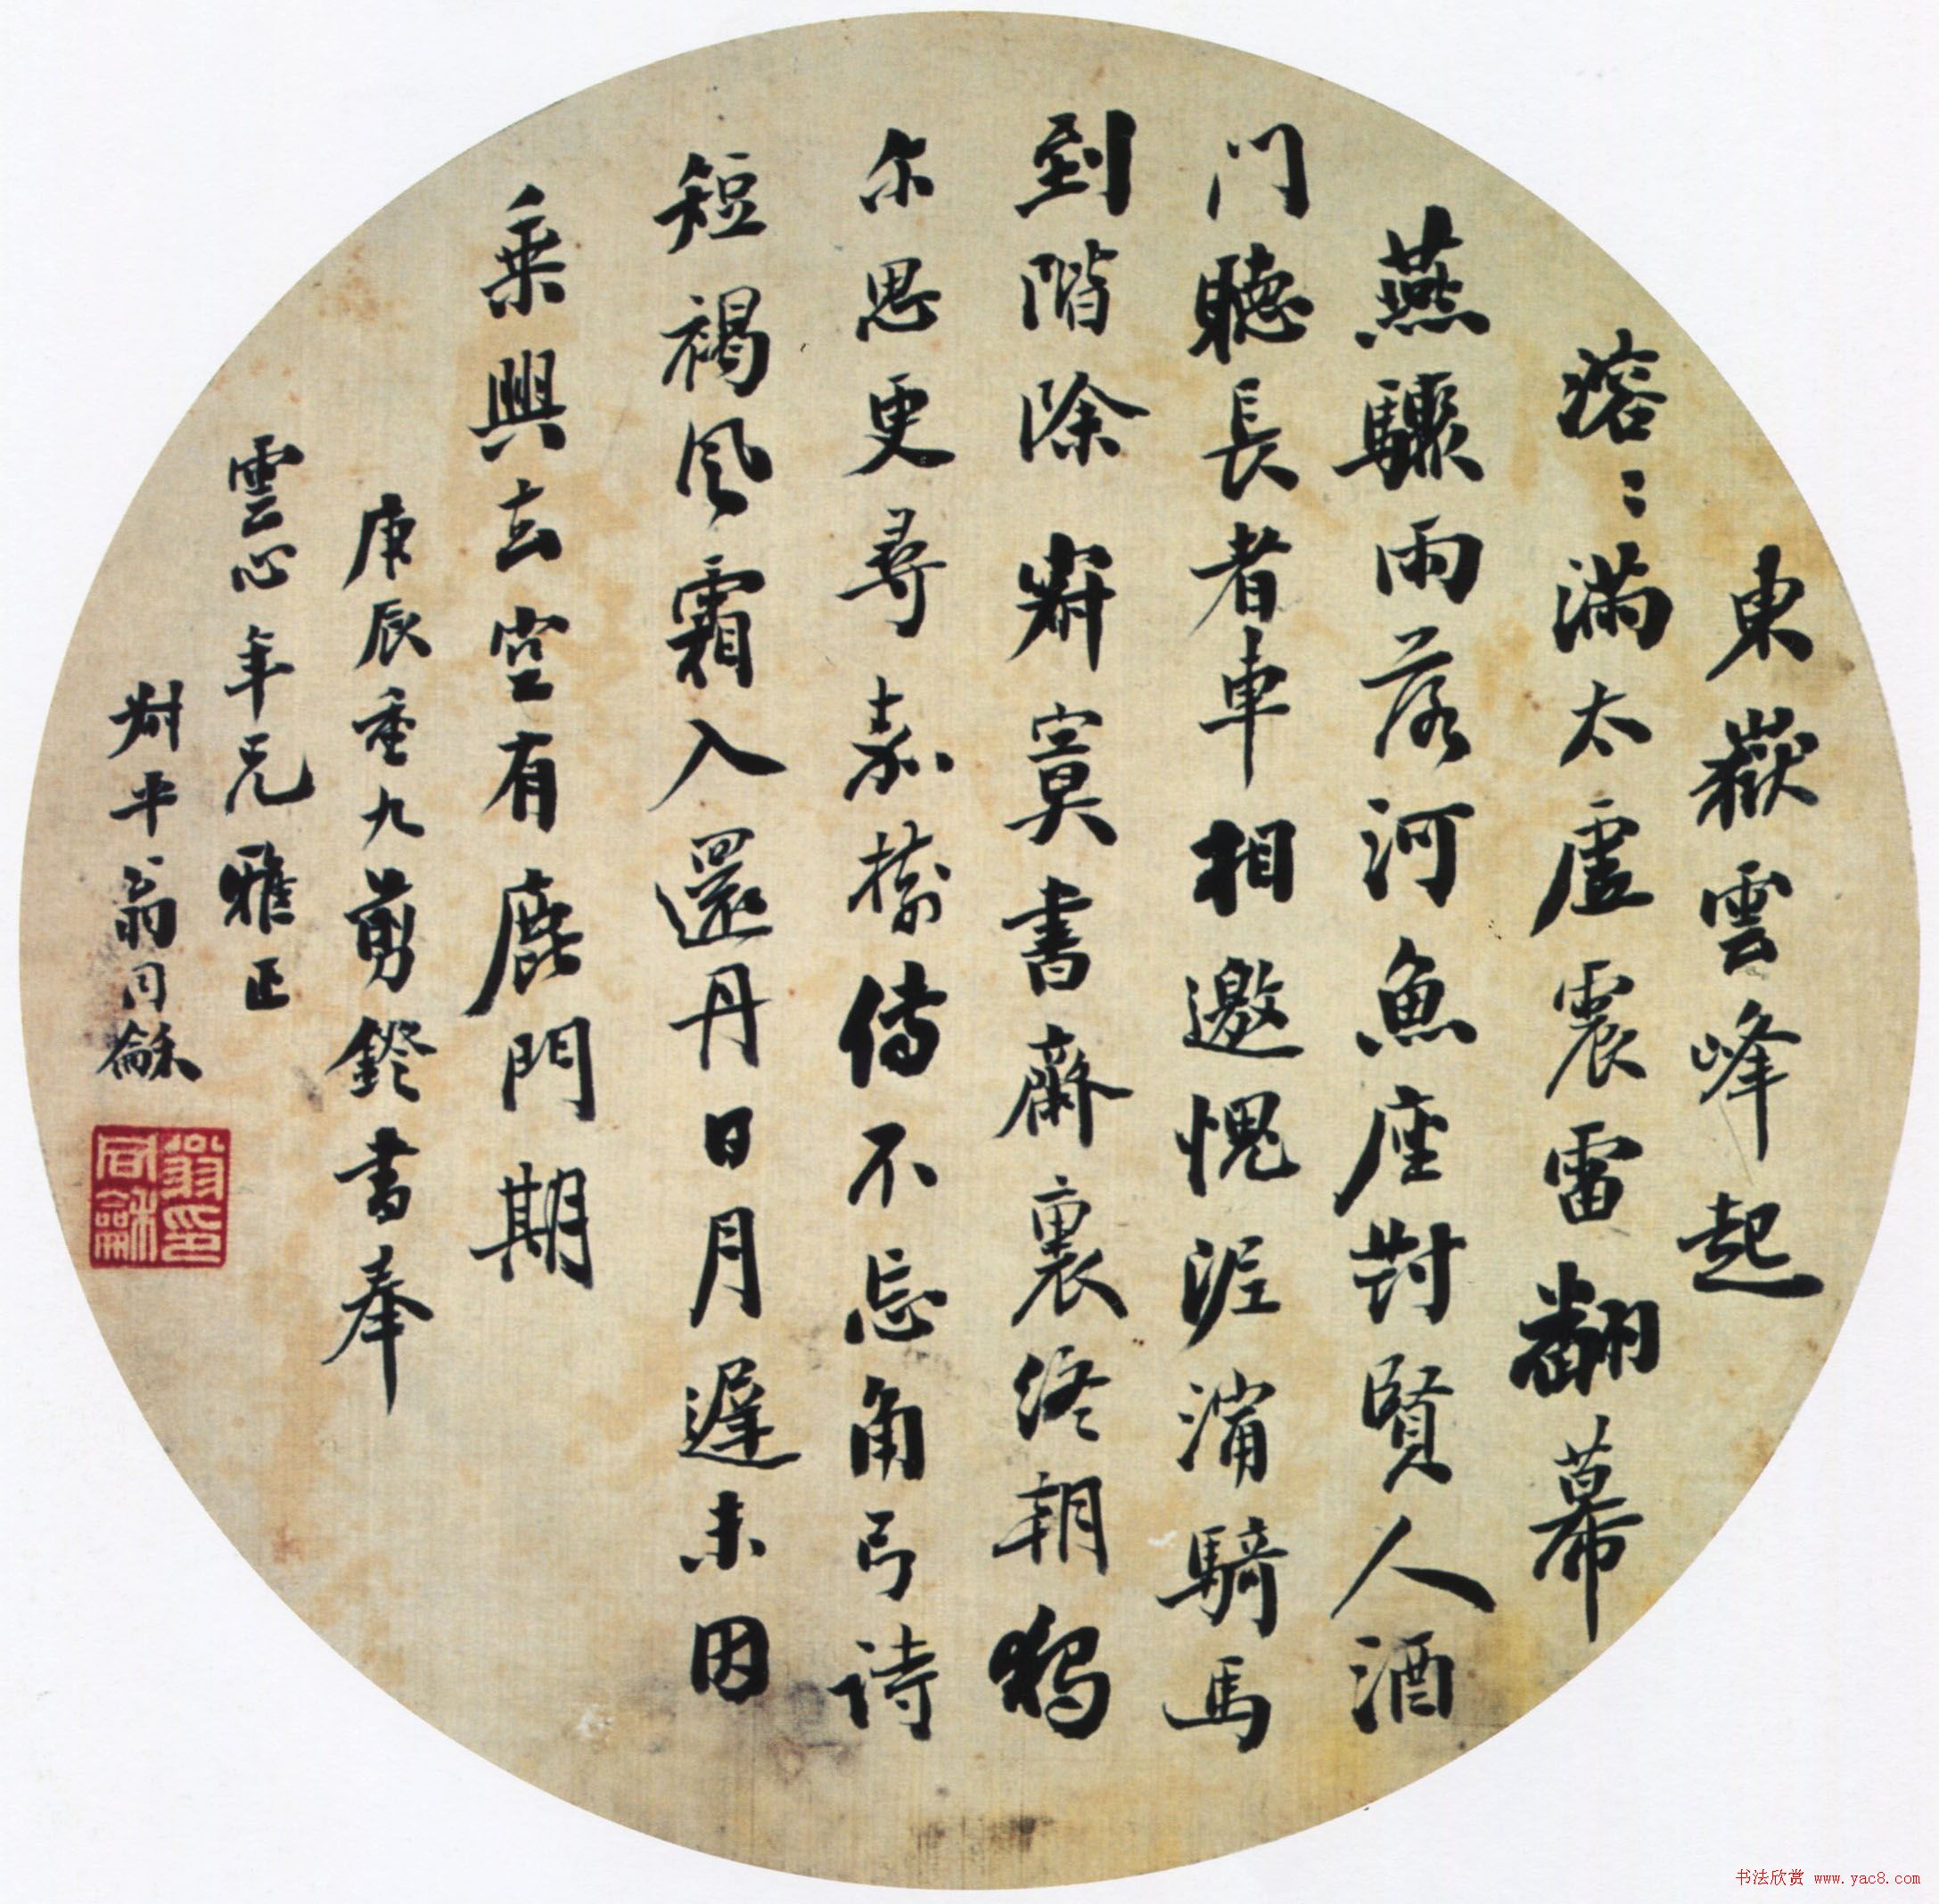 東嶽雲峰起
溶〻滿太虛震雷翻幕
燕驟雨落河魚座對賢人酒
门聽長者車相邀愧泥濘騎馬
到階除 寂寞書齋裏終朝獨
尔思更尋嘉樹傳不忘角弓诗
短褐風霜入還丹日月遲未因
乘興去空有鹿門期
庚辰重九剪鐙書奉
雲心年兄雅正
叔平翁同龢
翁同龢印
书法欣赏 www.yac8.com